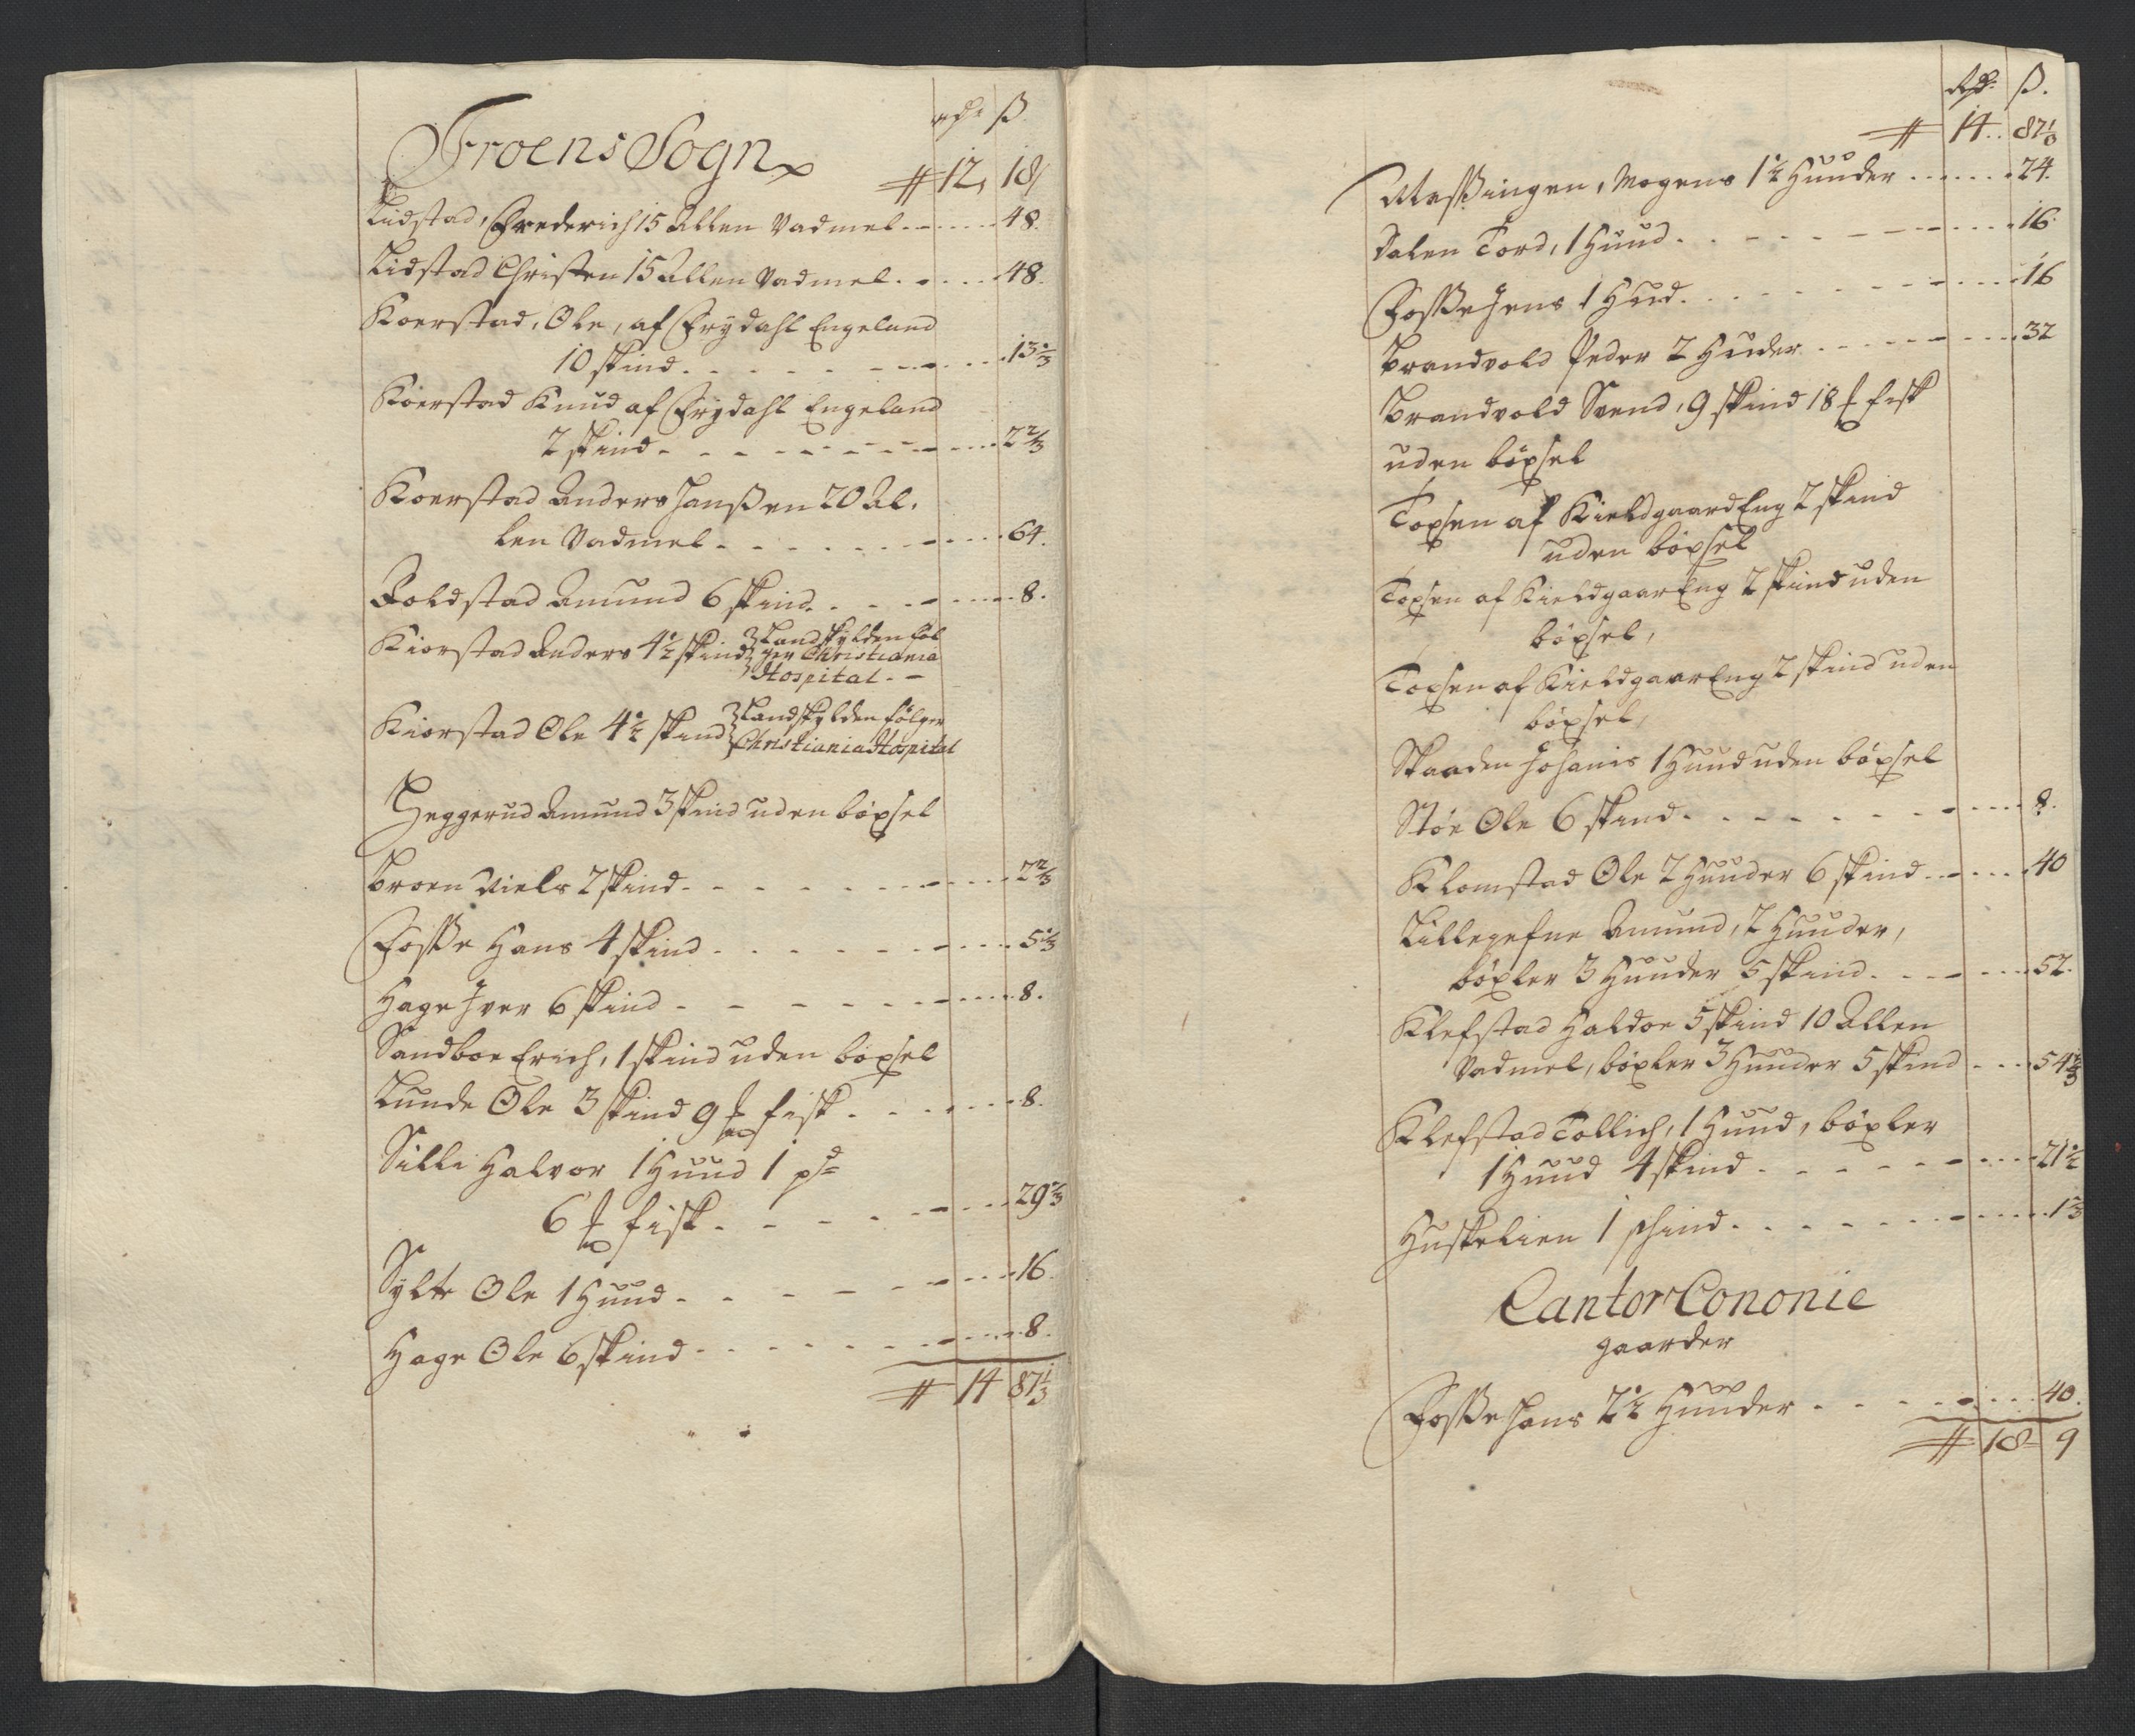 rdr ß
Froens Sogn
# 12, 18
Lidstad, Frederich 15 Allen Vadmel - - - 48.
Lidstad Christen 15 Allen Vadmel - - - 48.
Koerstad, Ole, af Frydahl Engeland
10 skind - - - 13 1/3
Koerstad Knud af Frydahl Engeland
2 skind - - - 2 2/3
Koerstad Anders Hanßen 20 Al,
len Vadmel - - - 64.
Foldstad Amund 6 skind - - - 8.
Kiorstad Anders 4 1/2 skind Landskylden føl
ger Christiania
Hospital
Kiorstad Ole 4 1/2 skind Landskylden følger
Christiania Hospital
Heggerud Amund 3 skind uden böxsel
Broen Niels 2 skind - - - 2 2/3
Foße Hans 4 skind - - - 5 1/3
Hage Iver 6 skind - - - 8.
Sandboe Erich, 1 skind uden böxsel
Lunde Ole 3 skind 9 ℔ fisk - - - 8.
Silli Halvor 1 Huud 1 pd
6 ℔ fisk - - - 29 1/3
Sylte Ole 1 Huud - - - 16.
Hage Ole 6 skind - - - 8.
# 14 87 1/3
Rdr ß.
# 14 .. 87 1/3
Maßingen, Mogens 1 1/2 Huuder - - - 24.
Dalen Tord, 1 Huud - - - 16.
Foße Jens 1 Hud - - - 16
Brandvold Peder 2 Huder - - - 32
Brandvold Svend, 9 skind 18 ℔ fisk
uden böxsel
Toxsen af Kieldgaard Eng 2 skind
uden böxsel
Toxsen af Kieldgaar Eng 2 skind uden
böxsel,
Toxsen af Kieldgaar Eng 2 skind uden
böxsel,
Skaaden Johanis 1 Huud uden böxsel
Stöe Ole 6 skind - - - 8.
Klomstad Ole 2 Huuder 6 skind - - - 40
Lillegefne Amund, 2 Huuder,
böxler 3 Huuder 5 skind - - - 52.
Klefstad Haldor 5 skind 10 Allen
Vadmel, böxler 3 Huuder 5 skind - - - 54 2/3
Klefstad Tollich, 1 Huud, böxler
1 Huud 4 skind - - - 21 1/2
Huskelien 1 skind - - - 1 1/3
Cantor Cononie
gaarder
Foße Hans 2 1/2 Huuder - - - 40.
# 18 9